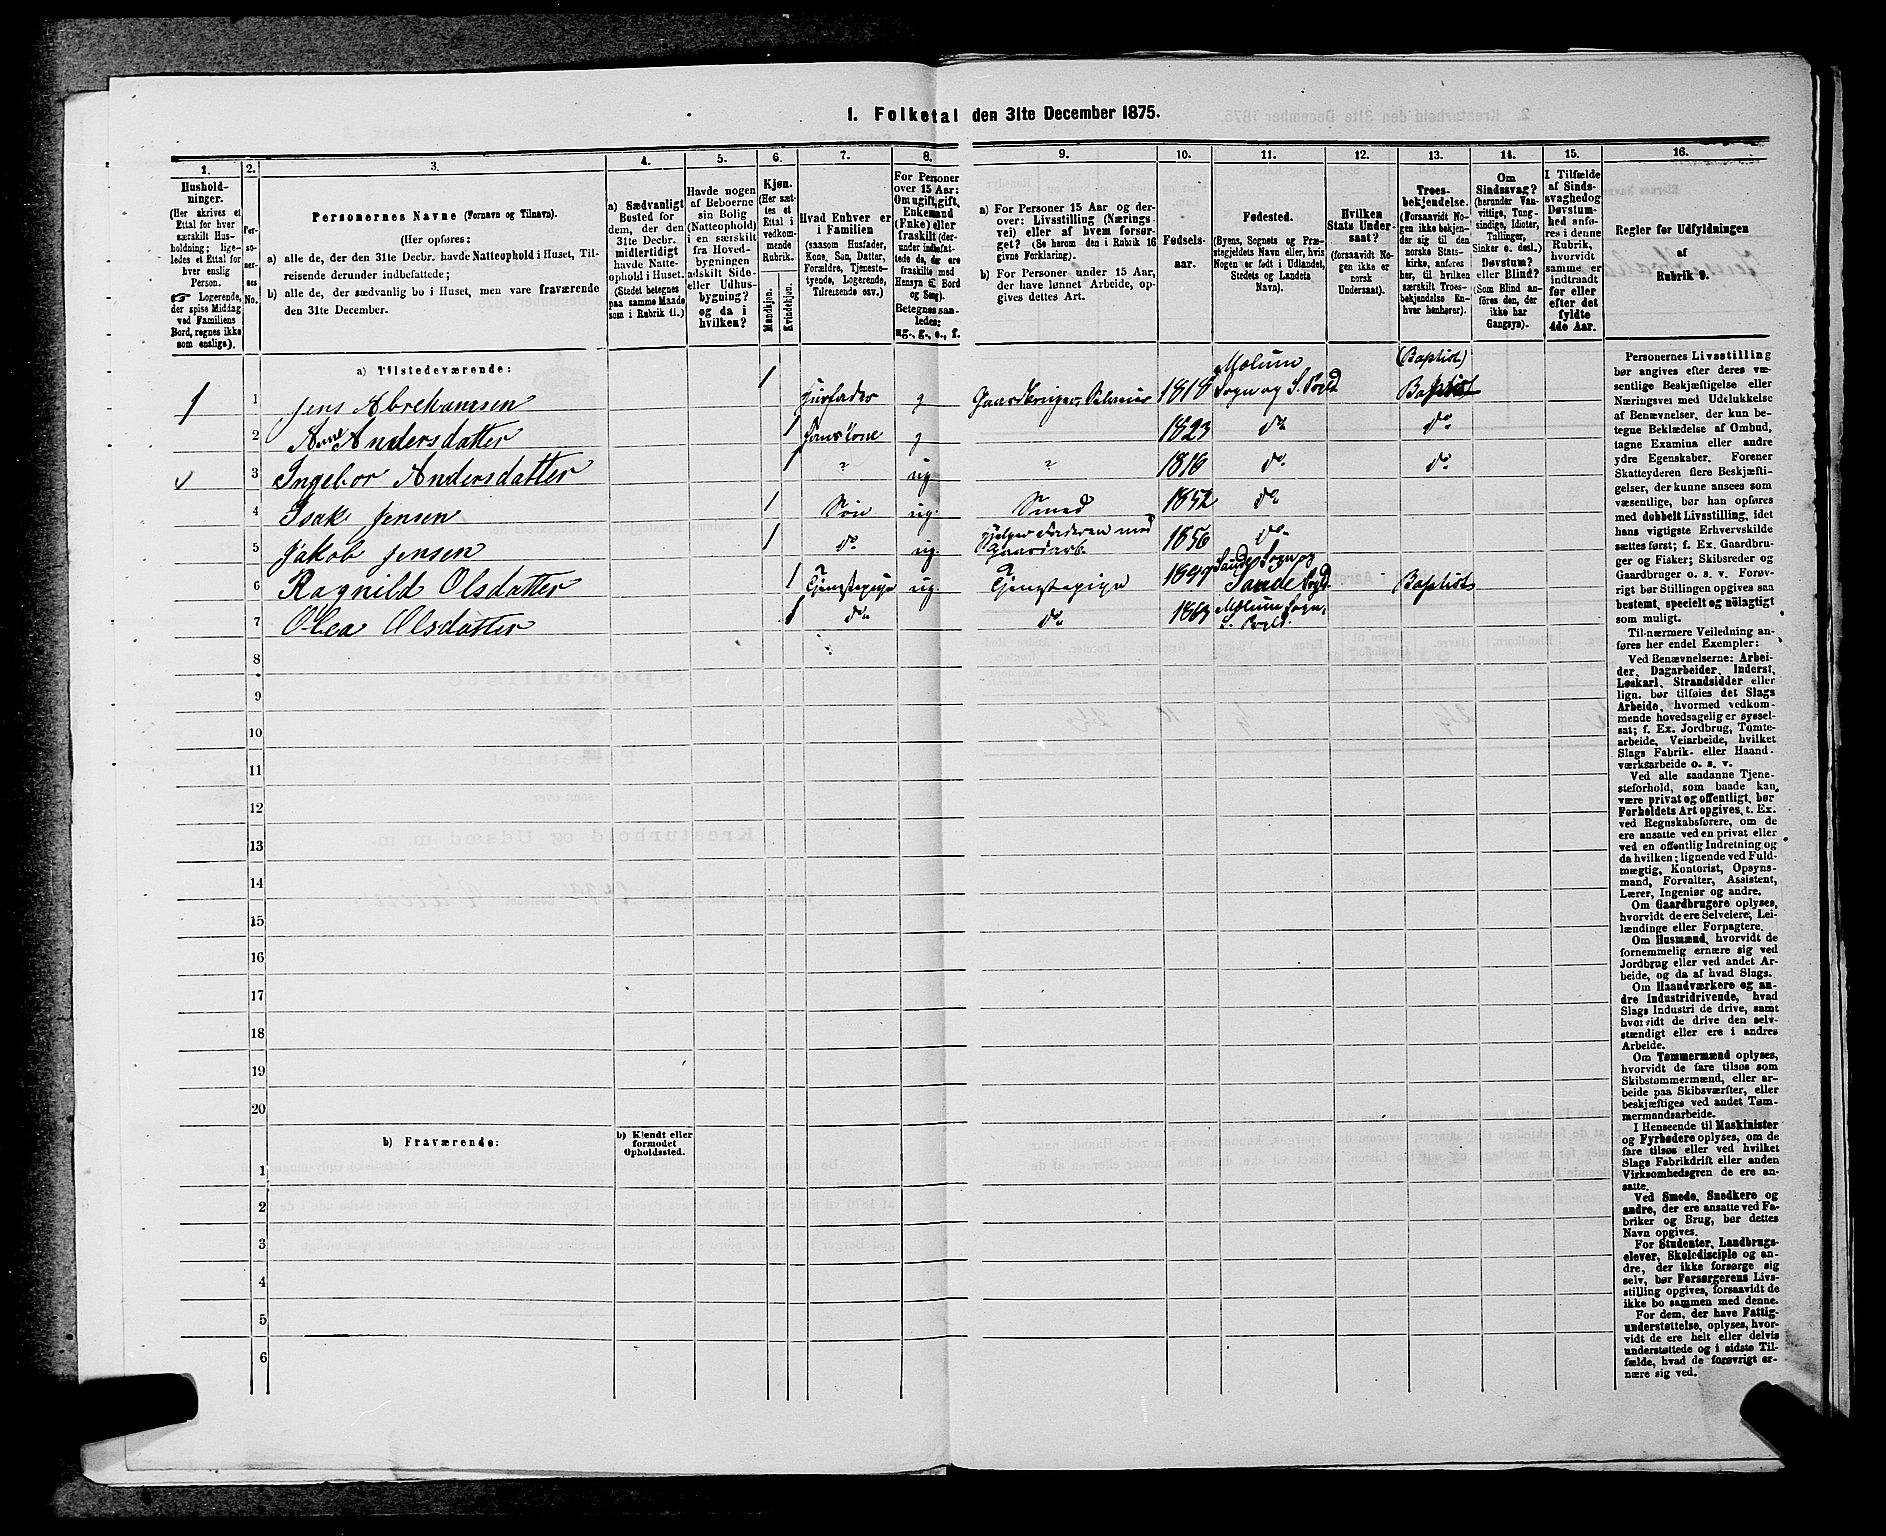 1. Folketal den 31te December 1875.
1.
Hushold-
ninger.
(Her skrives et
Ettal for hver
særskilt Hus-
holdning; lige-
ledes et Ettal for
hver enslig
Person.
☞ Logerende,
der spise Middag
ved Familiens
Bord, regnes ikke
som enslige).
2.
Per-
so-
ner-
nes
No.
3.
Personernes Navne (Fornavn og Tilnavn).
(Her opføres:
a) alle de, der den 31te Decbr. havde Natteophold i Huset, Til-
reisende derunder indbefattede;
b) alle de, der sædvanlig bo i Huset, men vare fraværende
den 31te December.
4.
a) Sædvanligt
Bosted for
dem, der den
31te Decbr.
midlertidigt
havde Natte-
ophold i Huset.
(Stedet betegnes
paa samme Maade
som i Rubrik 11.)
5.
Havde nogen
af Beboerne
sin Bolig
(Natteophold)
i en særskilt
fra Hoved-
bygningen
adskilt Side-
eller Udhus-
bygning?
og da i
hvilken?
6.
Kjøn.
(Her sæt-
tes et
Ettal i
vedkom-
mende
Rubrik.
Mandkjøn.
Kvindekjøn.
7.
Hvad Enhver er
i Familien
(saasom Husfader,
Kone, Søn, Datter,
Forældre, Tjeneste-
tyende, Logerende,
Tilreisende osv.)
8.
For Personer
over 15 Aar:
Om ugift, gift,
Enkemand
(Enke) eller
fraskilt (der-
under indbefat-
tede de, der ere
fraskilte med
Hensyn til Bord
og Seng).
Betegnes saa-
ledes:
ug., g., e., f.
9.
a) For Personer 15 Aar og der-
over: Livsstilling (Nærings-
vei) eller af hvem forsør-
get? (Se herom den i Rubrik 16
givne Forklaring).
b) For Personer under 15 Aar,
der have lønnet Arbeide, op-
gives dettes Art.
10.
Fødsels-
aar.
11.
Fødested.
(Byens, Sognets og Præ-
stegjeldets Navn eller, hvis
Nogen er født i Udlandet,
Stedets og Landets
Navn).
12.
Hvilken
Stats Under-
saat?
(forsaavidt No-
gen ikke er
norsk
Undersaat).
13.
Troes-
bekjendelse.
(Forsaavidt No-
gen ikke bekjen-
der sig til den
norske Stats-
kirke, anføres
her, til hvilken
særskilt Troes-
bekjendelse En-
hver henhører).
14.
Om
Sindssvag?
(herunder Van-
vittige, Tung-
sindige, Idioter,
Tullinger,
Sinker o. desl.)
Døvstum?
eller Blind?
(Som Blind an-
føres den, der
ikke har
Gangsyn).
15.
I Tilfælde
af Sinds-
svaghed og
Døvstum-
het anfø-
res i denne
Rubrik,
hvorvidt
samme er
indtraadt
før eller
efter det
fyldte
4de Aar.
16.
Regler for Udfyldningen
af
Rubrik 9.
a) Tilstedeværende:
1 1 Jens Abrahamsen 1 Husfader g Gaardbruger, Selveier 1818 Mælum Sogn og S. Pgld (Baptist) Baptist
2 Anne Andersdatter 1 Hans Kone g 1823 do do
3 Ingebor Andersdatter 1 " ug " 1816 do do
4 Isak Jensen 1 Søn ug. Smed 1852 do
5 Jakob Jensen 1 do ug. Hjelper Faderen med Gaardarb. 1856 do
6 Ragnild Olsdatter 1 Tjenestepige ug. Tjenestepige Sande Sogn og Sande Pgld. Baptist
7 Olea Olsdatter 1 do do 1863 Mælum Sogn, S. Pgld.
8
9
10
11
12
13
14
15
16
17
18
19
20
b) Fraværende:
b) Kjendt eller
formodet
Opholdssted.
1
2
3
4
5
6
Personernes Livsstilling
bør angives efter deres væ-
sentlige Beskjæftigelse eller
Næringsvei med Udelukkelse
af Benævnelser, der kun be-
tegne Beklædelse af Ombud,
tagne Examina eller andre
ydre Egenskaber. Forener
Skatteyderen flere Beskjæfti-
gelser, der kunne ansees som
væsentlige, bør han opføres
med dobbelt Livsstilling, idet
hans vigtigste Erhvervskilde
sættes først; f. Ex. Gaardbru-
ger og Fisker; Skibsreder og
Gaardbruger o. s. v. Forøv-
rigt bør Stillingen opgives saa
bestemt, specielt og nøiagtigt
som muligt.
Til nærmere Veiledning an-
føres her endel Exempler:
Ved Benævnelserne: Arbei-
der, Dagarbeider, Inderst,
Løskarl, Strandsidder eller
lign. bør tilføies det Slags
Arbeide, hvormed vedkom-
mende hovedsagelig er syssel-
sat; f. Ex. Jordbrug, Tomte-
arbeide, Veiarbeide, hvilket
Slags Fabrik- eller Haand-
værksarbeide o. s. v.
Ved alle saadanne Tjene-
steforhold, som baade kan
være privat og offentligt, bør
Forholdets Art opgives, t. Ex.
ved Regnskabsførere, om de
ere ansatte ved en privat eller
ved en offentlig Indretning og
da hvilken; lignende ved Fuld-
mægtig, Kontorist, Opsyns-
mand, Forvalter, Assistent,
Lærer, Ingeniør og andre.
Om Gaardbrugere oplyses,
hvorvidt de ere Selveiere, Lei-
lændinge eller Forpagtere.
Om Husmænd, hvorvidt de
fornemmelig ernære sig ved
Jordbrug eller ved andet Ar-
beide, og da af hvad Slags.
Om Haandværkere og an-
dre Industridrivende, hvad
Slags Industri de drive, samt
hvorvidt de drive den selv-
stændigt eller ere i andres
Arbeide.
Om Tømmermænd oplyses,
hvorvidt de fare tilsøs som
Skibstømmermænd, eller ar-
beide paa Skibsværfter, eller
beskjæftiges ved andet Tøm-
mermandsarbeide.
I Henseende til Maskinister
og Fyrbødere oplyses, om de
fare tilsøs eller ved hvilket
Slags Fabrikdrift eller anden
Virksomhedsgren de ere an-
satte.
Ved Smede, Snedkere og
andre, der ere ansatte ved Fa-
briker og Brug, bør dettes
Navn opgives.
For Studenter, Landbrugs-
elever, Skoledisciple og an-
dre, der ikke forsørge sig
selv, bør Forsørgerens Livs-
stilling opgives, forsaavidt de
ikke bo sammen med denne.
For dem, der have Fattig-
understøttelse, oplyses, hvor-
vidt de ere helt eller delvis
understøttede og i sidste Til-
fælde, hvad de forøvrigt er-
nære sig ved.